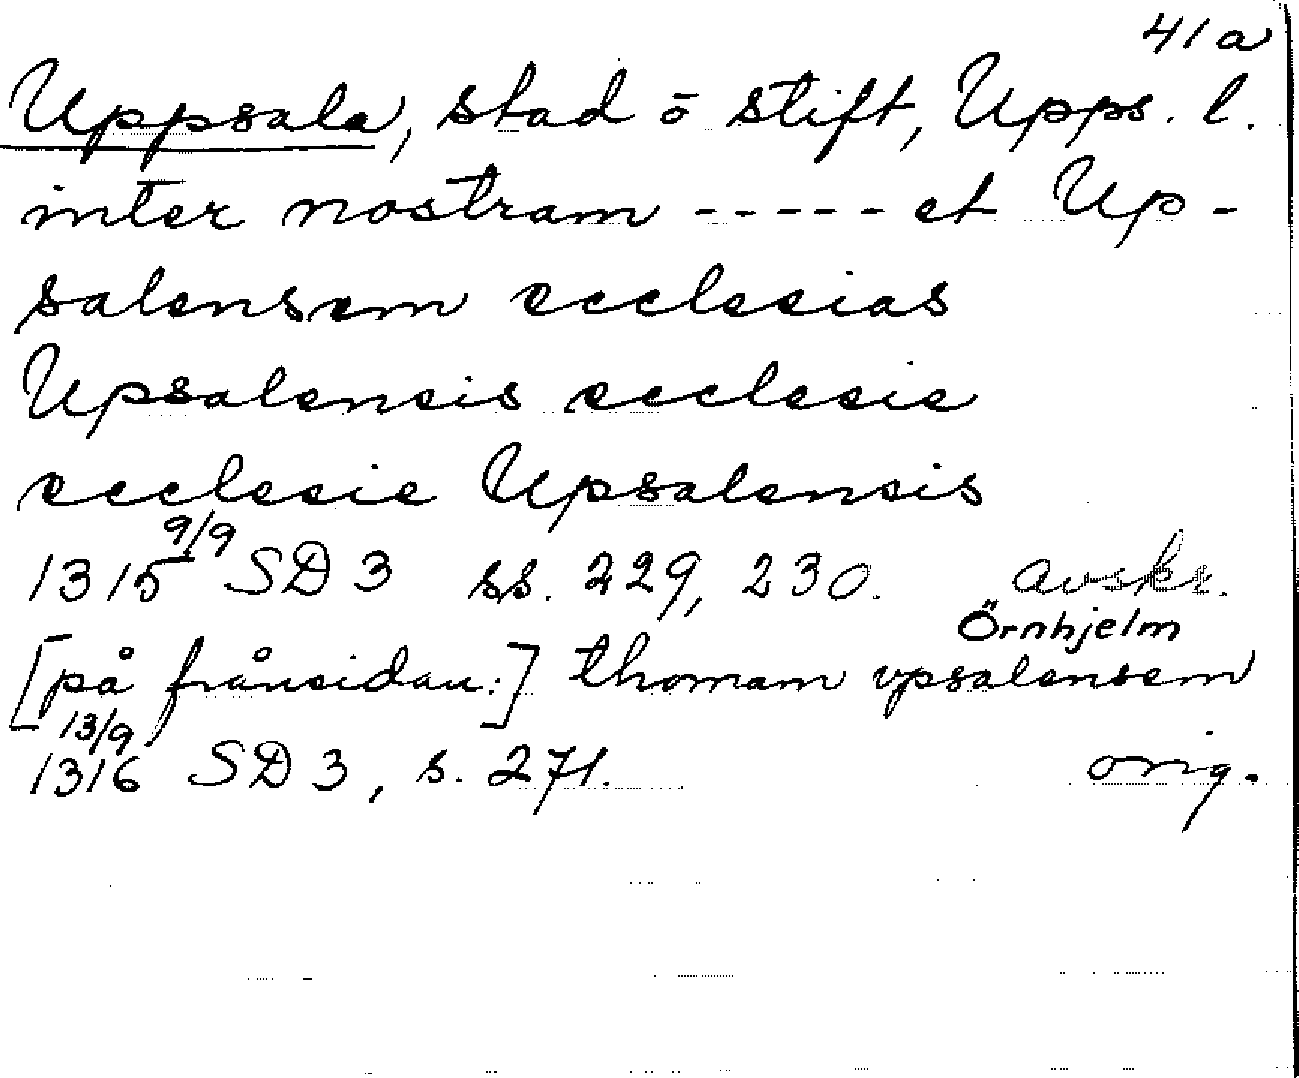 41a
Uppsala, stad o stift, Upps. l.
inter nostram ----- et Up-
salensem ecclesias
Upsalensis ecclesie
ecclesie Upsalensis
1315 9/9 SD 3 ss. 229, 230. avskr.
Örnhjelm
[på frånsidan:] thomam vpsalensem
13/9
1316 SD 3, s. 271. orig.